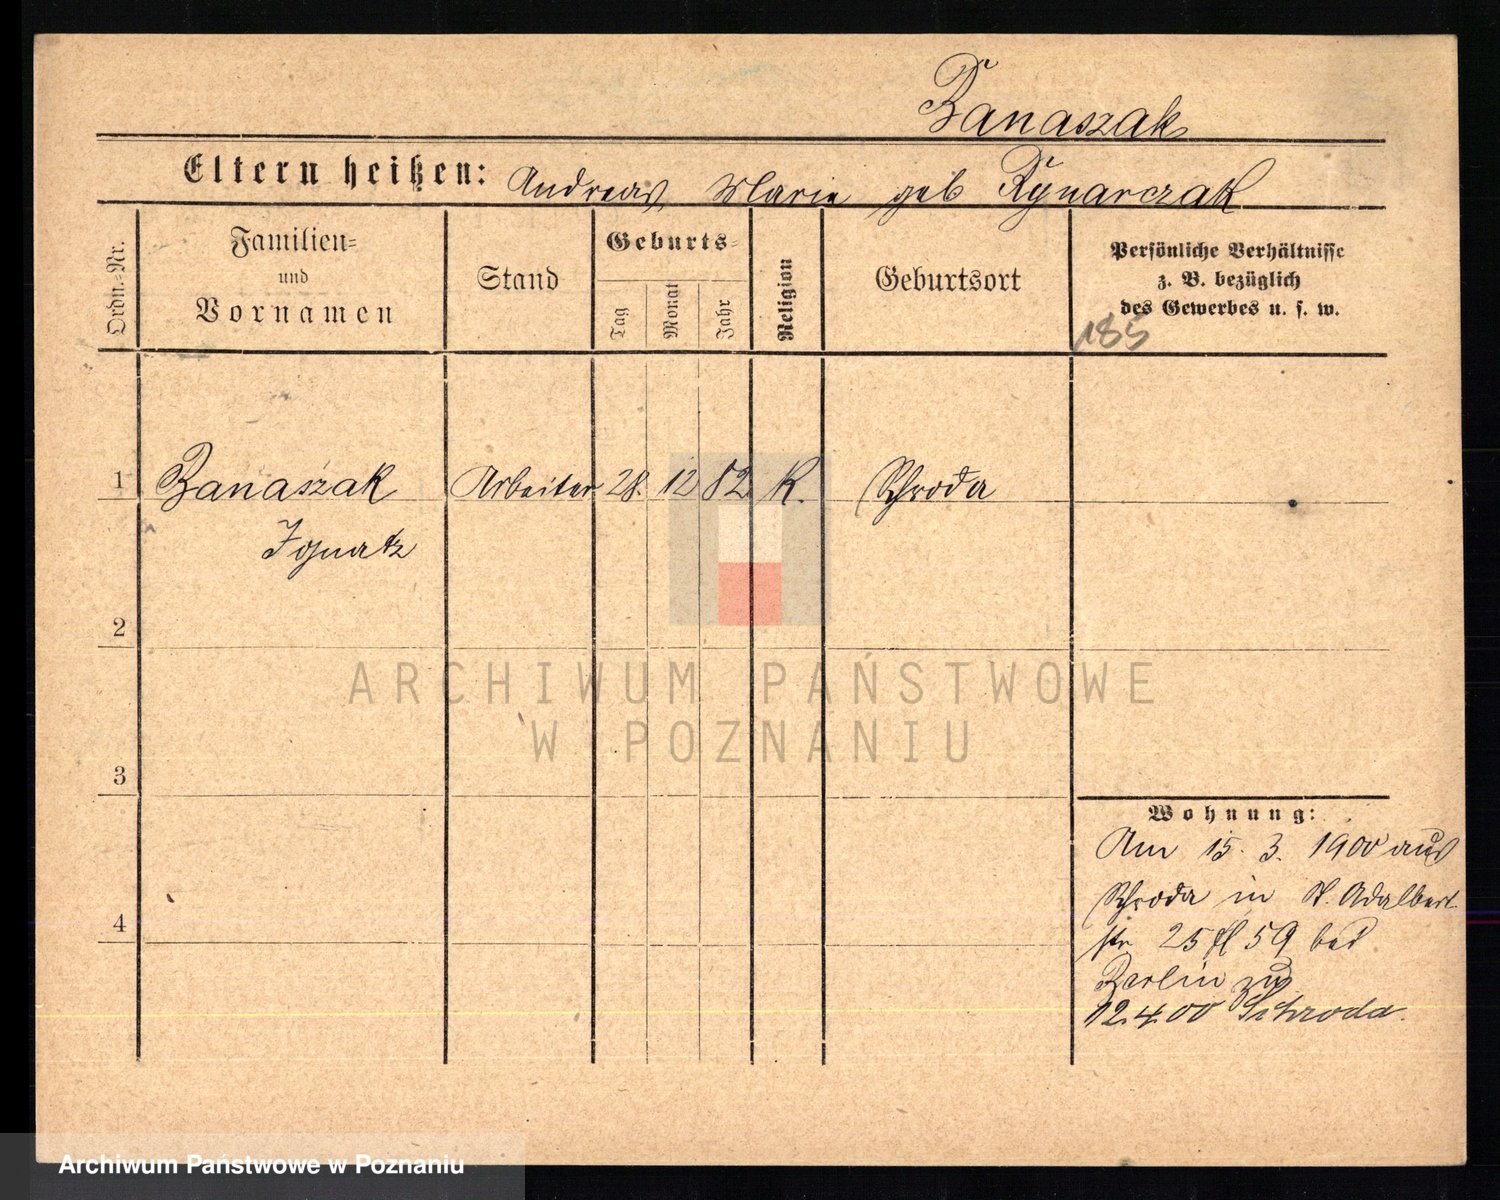 Banaszak
Eltern heißen: Andreas, Marie geb Rynarczak
Ordn.-Nr.
Familien=
und
Vornamen
Stand
Geburts=
Tag
Monat
Jahr
Religion
Geburtsort
Persönliche Verhältnisse
z. B. bezüglich
des Gewerbes u. s. w.
185
1 Banaszak Arbeiter 28. 12 82 K. Schroda
Ignatz
2
3
4
Wohnung:
Am 15. 3. 1900 aus
Schroda in St. Adalbert
str 25 59 bei
Berlin zu
12.4.00 Schroda.
ARCHIWUM PAŃSTWOWE
W POZNANIU
Archiwum Państwowe w Poznaniu